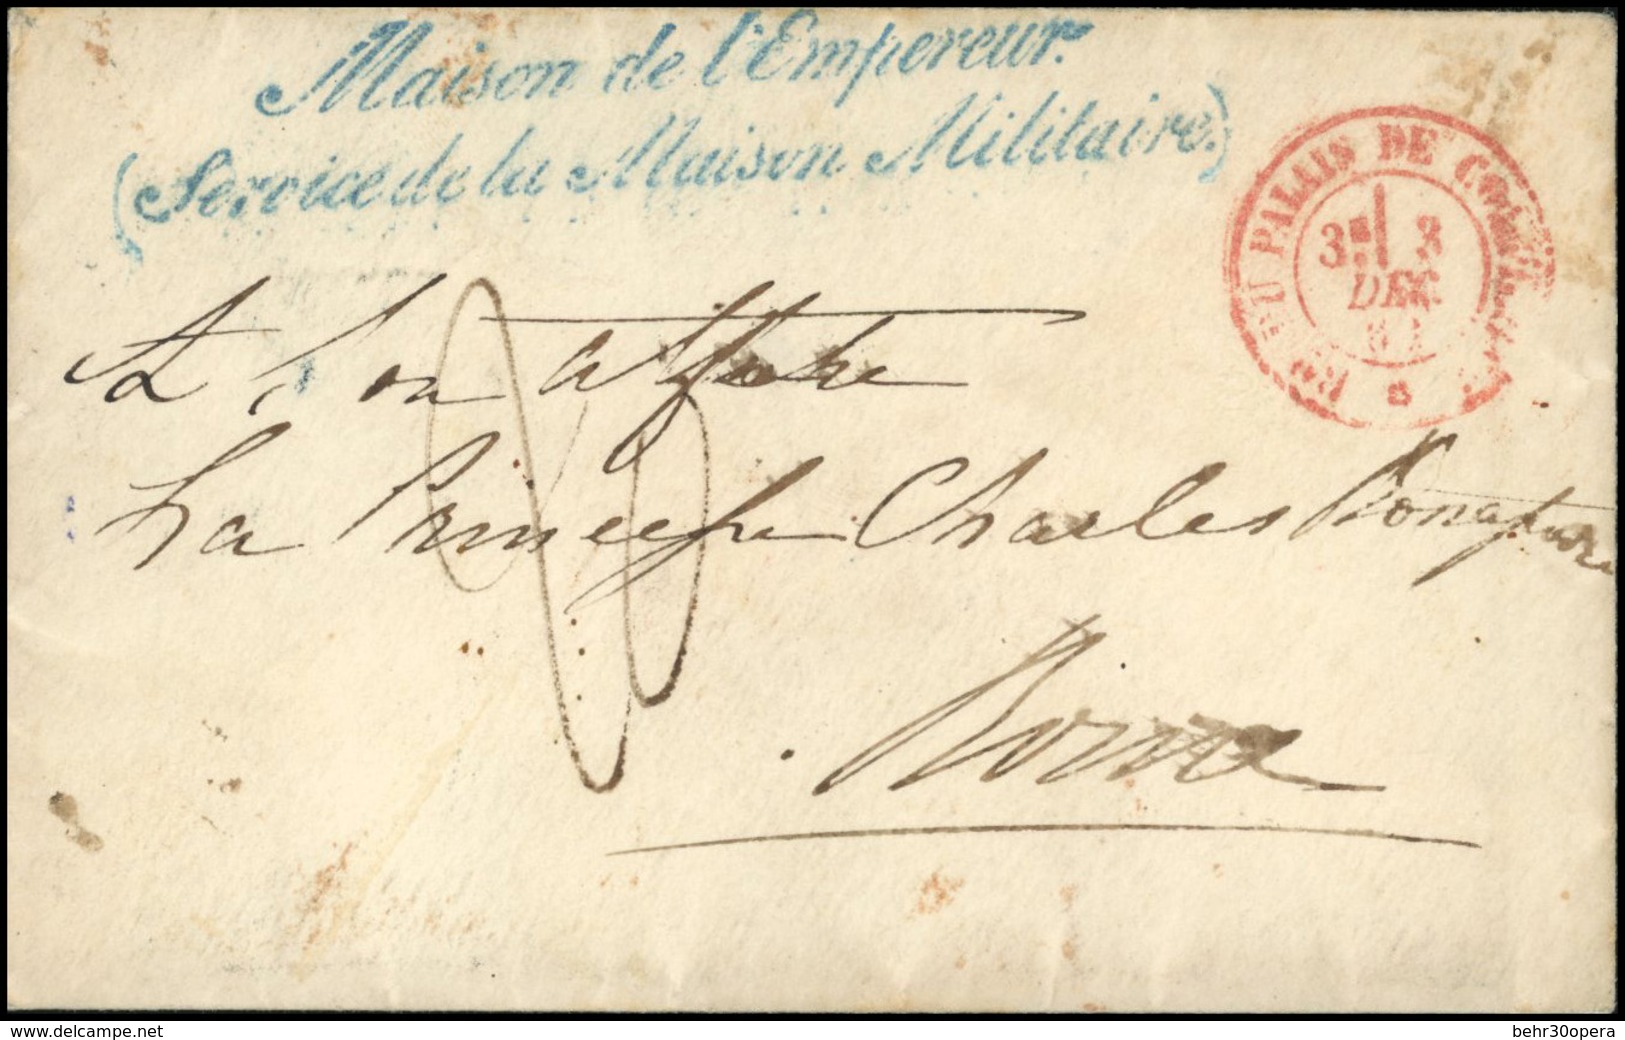 Maison de l'Empereur.
(Service de la Maison Militaire.)
BAU DU PALAIS DE COMPIÈGNE
3E 3
DEC.
S
A Son altesse
La Princesse Charles Bonaparte
Rome
www.delcampe.net
behr30opera